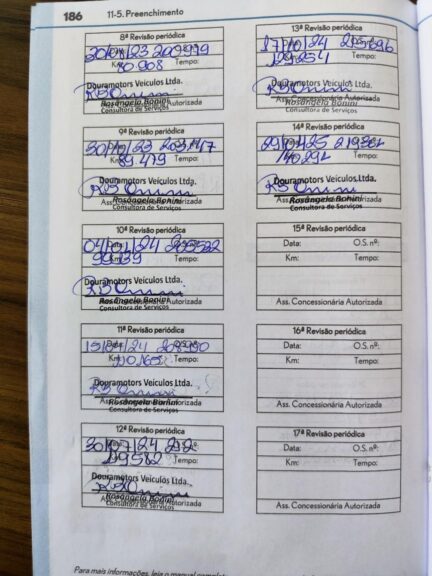 186 11-5. Preenchimento
8ª Revisão periódica
Data: O.S. nº:
Km: 80.908 Tempo:
Douramotors Veículos Ltda.
Ass. Concessionária Autorizada
Rosângela Bonini
Consultora de Serviços
9ª Revisão periódica
30/10/23
89.479 Tempo:
Douramotors Veículos Ltda.
Ass. Concessionária Autorizada
Rosângela Bonini
Consultora de Serviços
10ª Revisão periódica
04/01/24
Tempo:
Douramotors Veículos Ltda.
Ass. Concessionária Autorizada
Rosângela Bonini
Consultora de Serviços
11ª Revisão periódica
15/04/24
Km: 110.165 Tempo:
Douramotors Veículos Ltda.
Ass. Concessionária Autorizada
Rosângela Bonini
Consultora de Serviços
12ª Revisão periódica
30/07/24
Tempo:
Douramotors Veículos Ltda.
Ass. Concessionária Autorizada
Rosângela Bonini
Consultora de Serviços
13ª Revisão periódica
17/10/24
129254 Tempo:
Douramotors Veículos Ltda.
Ass. Concessionária Autorizada
Rosângela Bonini
Consultora de Serviços
14ª Revisão periódica
29/04/25
140291 Tempo:
Douramotors Veículos Ltda.
Ass. Concessionária Autorizada
Rosângela Bonini
Consultora de Serviços
15ª Revisão periódica
Data: O.S. nº:
Km: Tempo:
Ass. Concessionária Autorizada
16ª Revisão periódica
Data: O.S. nº:
Km: Tempo:
Ass. Concessionária Autorizada
17ª Revisão periódica
Data: O.S. nº:
Km: Tempo:
Ass. Concessionária Autorizada
Para mais informações, leia o manual